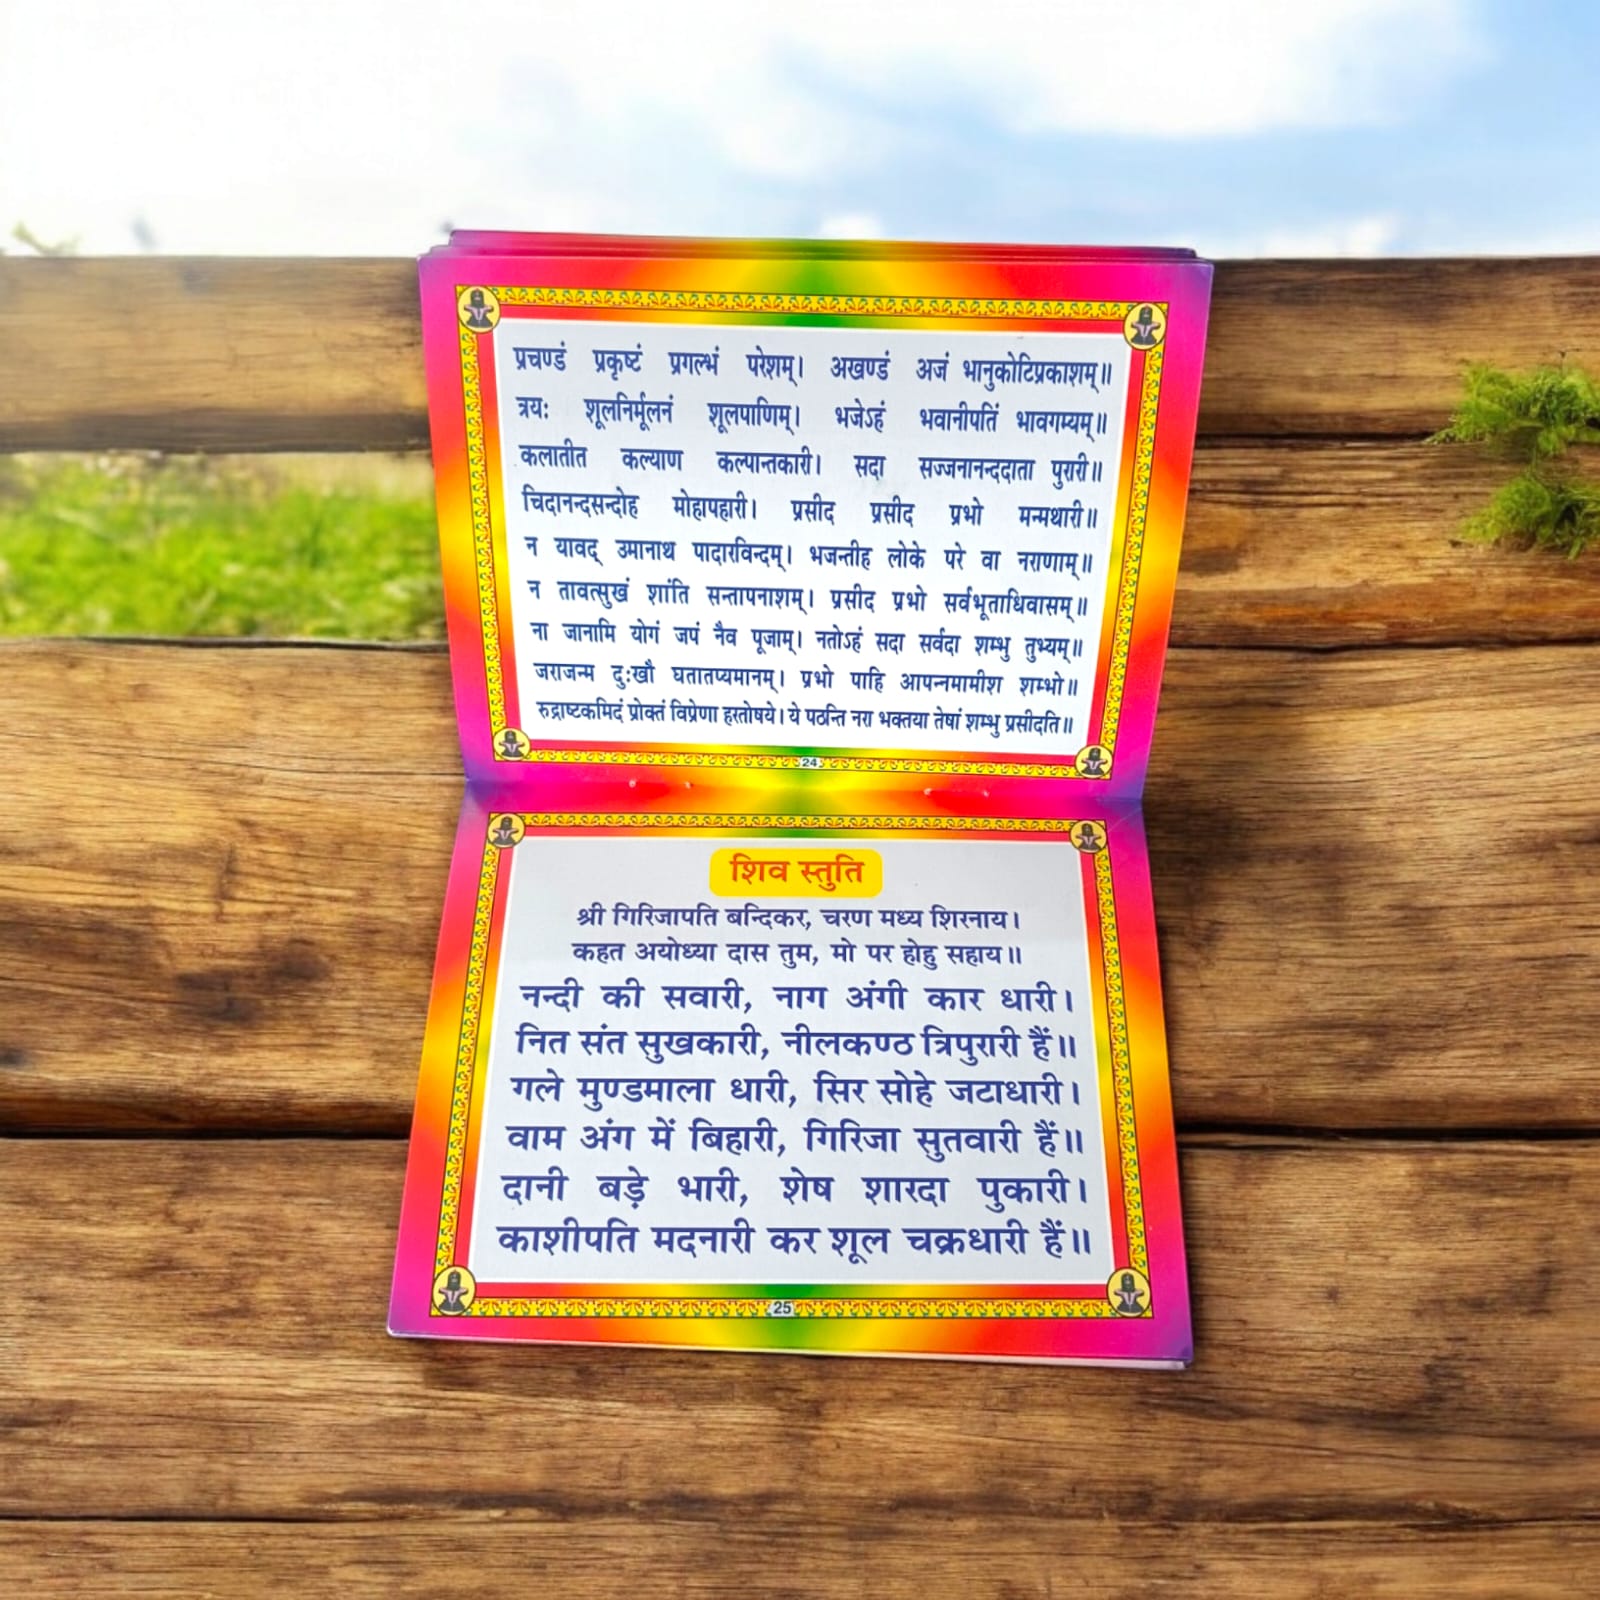 प्रचण्डं प्रकृष्टं प्रगल्भं परेशम्। अखण्डं अजं भानुकोटिप्रकाशम्॥
त्रयः शूलनिर्मूलनं शूलपाणिम्। भजेऽहं भवानीपतिं भावगम्यम्॥
कलातीत कल्याण कल्पान्तकारी। सदा सज्जनानन्ददाता पुरारी॥
चिदानन्दसन्दोह मोहापहारी। प्रसीद प्रसीद प्रभो मन्मथारी॥
न यावद् उमानाथ पादारविन्दम्। भजन्तीह लोके परे वा नराणाम्॥
न तावत्सुखं शांति सन्तापनाशम्। प्रसीद प्रभो सर्वभूताधिवासम्॥
ना जानामि योगं जपं नैव पूजाम्। नतोऽहं सदा सर्वदा शम्भु तुभ्यम्॥
जराजन्म दुःखौ घतातप्यमानम्। प्रभो पाहि आपन्नमामीश शम्भो॥
रुद्राष्टकमिदं प्रोक्तं विप्रेणा हरतोषये। ये पठन्ति नरा भक्तया तेषां शम्भु प्रसीदति॥
24
शिव स्तुति
श्री गिरिजापति बन्दिकर, चरण मध्य शिरनाय।
कहत अयोध्या दास तुम, मो पर होहु सहाय॥
नन्दी की सवारी, नाग अंगी कार धारी।
नित संत सुखकारी, नीलकण्ठ त्रिपुरारी हैं॥
गले मुण्डमाला धारी, सिर सोहे जटाधारी।
वाम अंग में बिहारी, गिरिजा सुतवारी हैं॥
दानी बड़े भारी, शेष शारदा पुकारी।
काशीपति मदनारी कर शूल चक्रधारी हैं॥
25